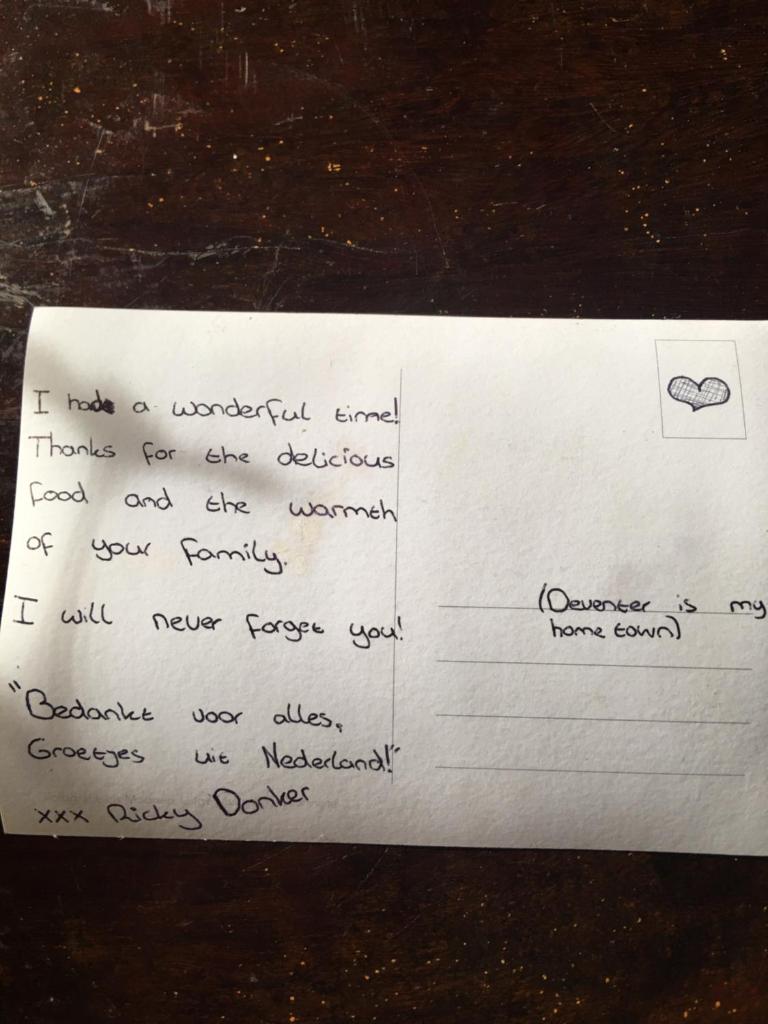 I had a wonderful time!
Thanks for the delicious
food and the warmth
of your family.
I will never forget you!
"Bedankt voor alles,
Groetjes uit Nederland!"
xxx Ricky Donker
(Deventer is my
home town)